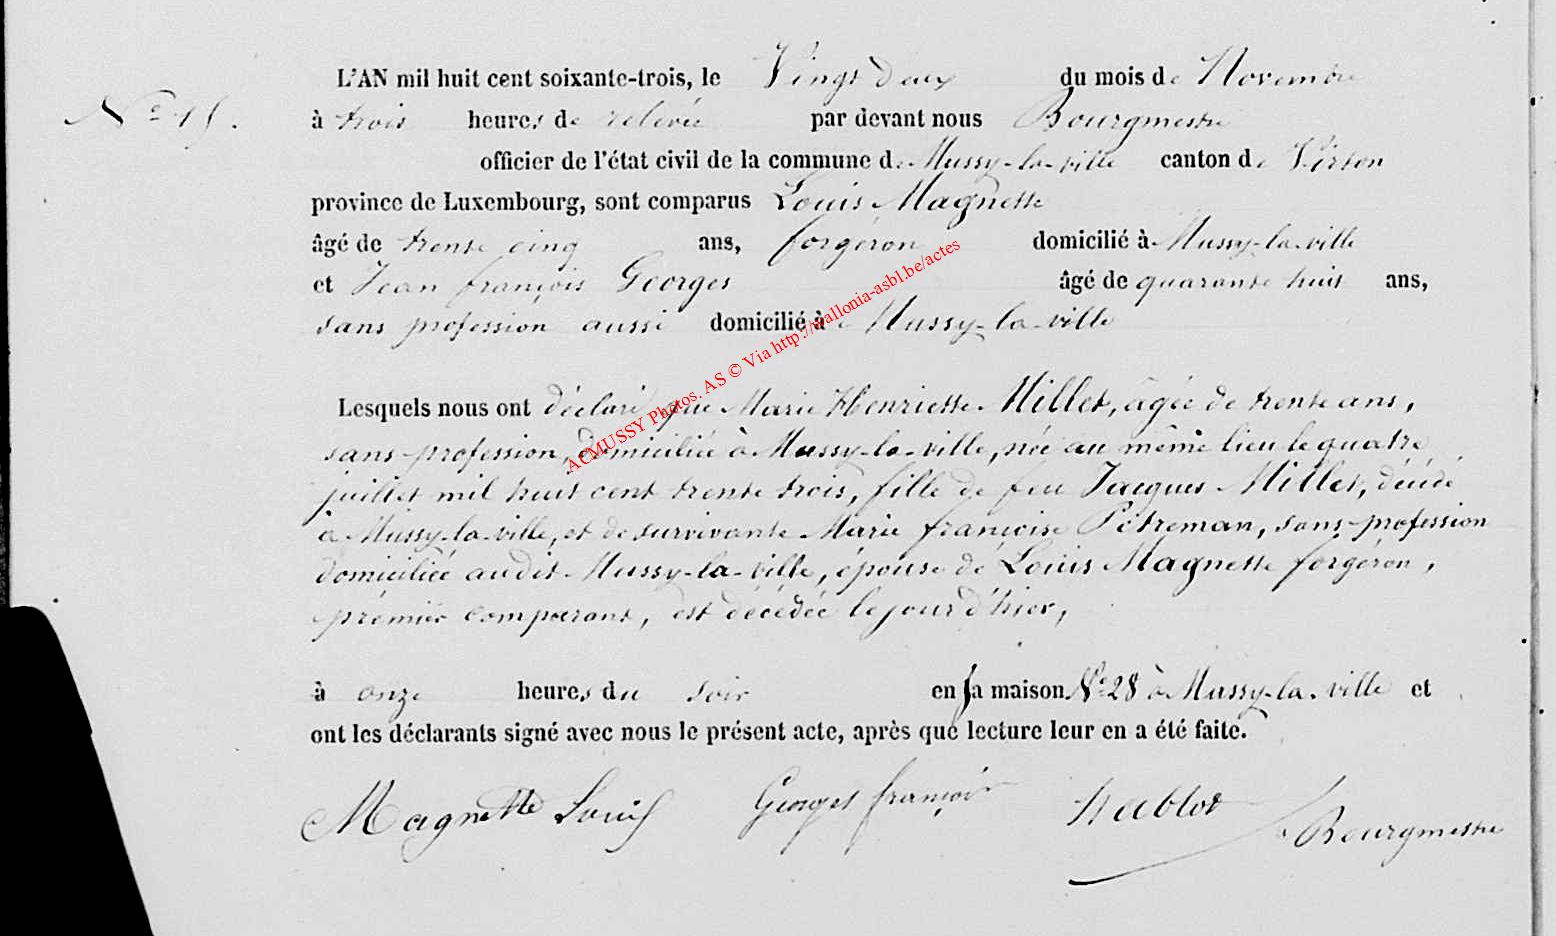 L'AN mil huit cent soixante-trois, le Vingt deux du mois de Novembre
N° 15.
à trois heures de relevée par devant nous Bourgmestre
officier de l'état civil de la commune de Mussy-la-ville canton de Virton
province de Luxembourg, sont comparus Louis Magnette
âgé de trente cinq ans, forgéron domicilié à Mussy-la-ville
et Jean françois Georges âgé de quarante huit ans,
sans profession aussi domicilié à Mussy-la-ville
Lesquels nous ont déclaré que Marie Henriette Millet, âgée de trente ans,
sans profession, domiciliée à Mussy-la-ville, née au même lieu le quatre
juillet mil huit cent trente trois, fille de feu Jacques Millet, décédé
à Mussy-la-ville, et de survivante Marie françoise Pétreman, sans profession
domiciliée audit Mussy-la-ville, épouse de Louis Magnette forgéron,
prémier comparant, est décédée le jour d'hier,
à onze heures du soir en sa maison N° 28 à Mussy-la-ville et
ont les déclarants signé avec nous le présent acte, après que lecture leur en a été faite.
Magnette Louis Georges françois Hablot Bourgmestre
ACMUSSY Photos. AS © Via http://wallonia-asbl.be/actes